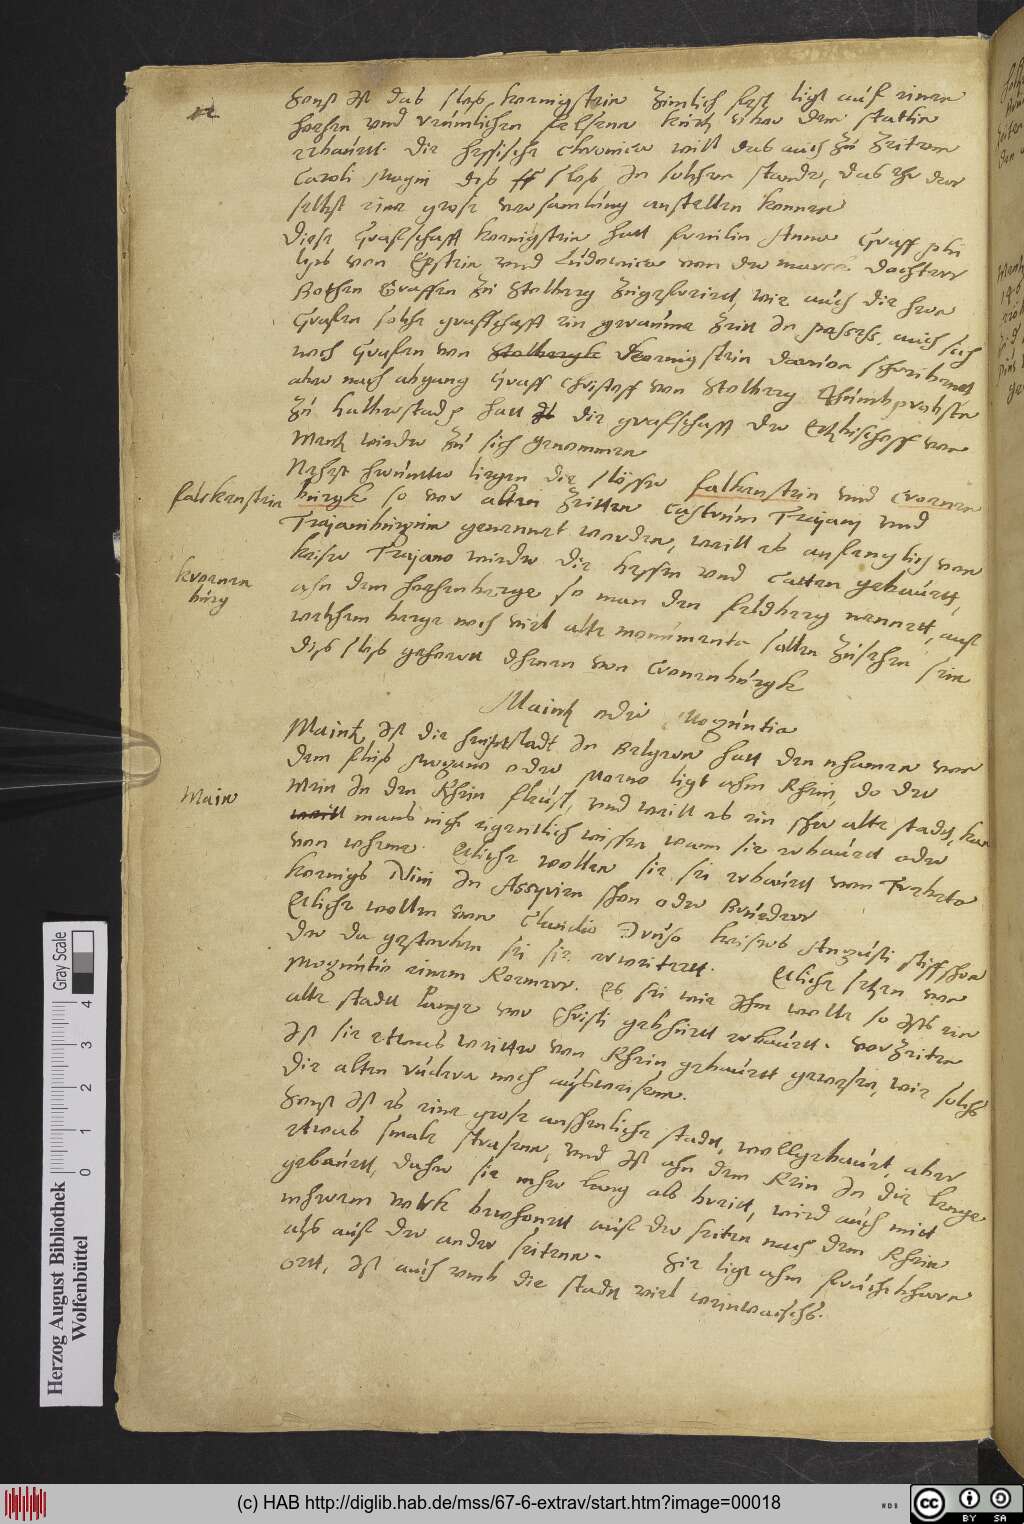 12
Sonst ist das slos koenigstein zimlich fest ligt auf einen
hohen und reumlichen felsenn kurtz uber dem stetlin
erbauet. die hessische chronica will das auch zu zeitenn
Caroli Magni dis slos in solchen stande, das ehr dar
selbst eine grose versamlung anstellen konnen
Diese Graffschafft koenigstein hatt freulin Anna Graff phi
lips von Epstein und Ludowica von der marck dochterr
Bothen Graffen zu Stolberg zugefreiet, wie auch die herrn
Grafen solche graffschafft ein geraume zeitt in possess, auch sich
noch Grafen von koenigstein davon schreibenn
aber nach abgang Graff Christoff von Stolberg thumbprobsten
zu halberstadt hatt die grafschafft der Ertzbischoff von
Mentz wieder zu sich genommen
Nehest herunter liegen die slösser falkenstein und Cronen
burgk so vor alten zeitten castrum Trajani und
genennet worden, will es anfenglich von
keiser Trajano wieder die hessen und Catten gebauett,
ahn dem hohenberge so man den feldberg nennett, auff
welchem berge noch viel alte monumenta sollen zusehen sein
Dis slos gehorett denen von Cronenburgk
falckenstein
kronen
burg
Maintz oder Moguntia
Maintz ist die heuptstadt den nhamen von
dem flus Mogano oder Moeno ligt ahm Rhein, do der
Mein in den Rhein fleust, und will es ein sehr alte stadt, kan
mans nicht eigentlich wissen wan sie erbauett oder
von wehme. Etliche wollen sie sei erbauett von Trebeta
koenigs Nini in Assyrien shon oder Bruederr
Etliche wollen von Claudio Druso keisers Augusti stiffshon
der da gestorben sei sie erweitert. Etliche setzen von
Moguntio einem Roemerr. Es sei wie ihm wolle so ists ein
alte stadtt lange vor Christi gebhurtt erbauett. vor zeiten
ist sie etwas weitter von Rhein gebauett gewesen, wie solchs
die alten rudera noch ausweisenn.
Sonst ist es eine grose ansehenliche stadtt, wollgebauet, aber
etwas smale strasenn, und ist ahn dem Rein in die lenge
gebauett, daher sie mehr lang als breitt, wird auch mitt
mehrem volck bewohnett auff der seiten nach dem Rhein
als auff der ander seitenn. Sie ligt ahm fruchtbharn
ort, ist auch umb die stadtt viel weinwachs.
Main
Herzog August Bibliothek
Wolfenbüttel
Gray Scale
0 1 2 3 4
(c) HAB http://diglib.hab.de/mss/67-6-extrav/start.htm?image=00018
WDB
cc BY SA